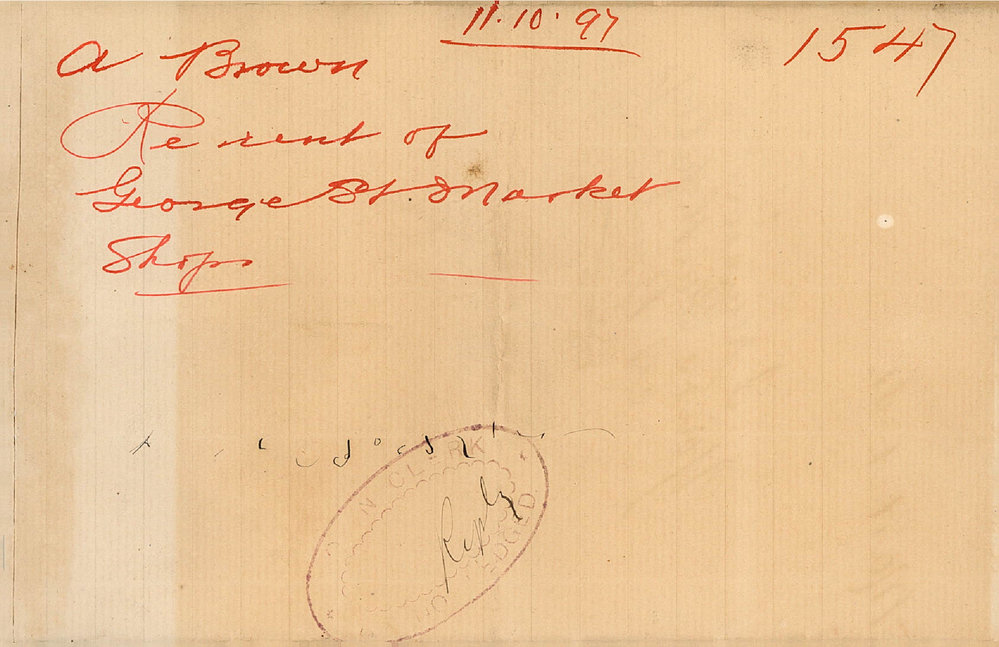 11.10.97
1547
A Brown
Re rent of
George St. Market
Shops
CLERK
Reply